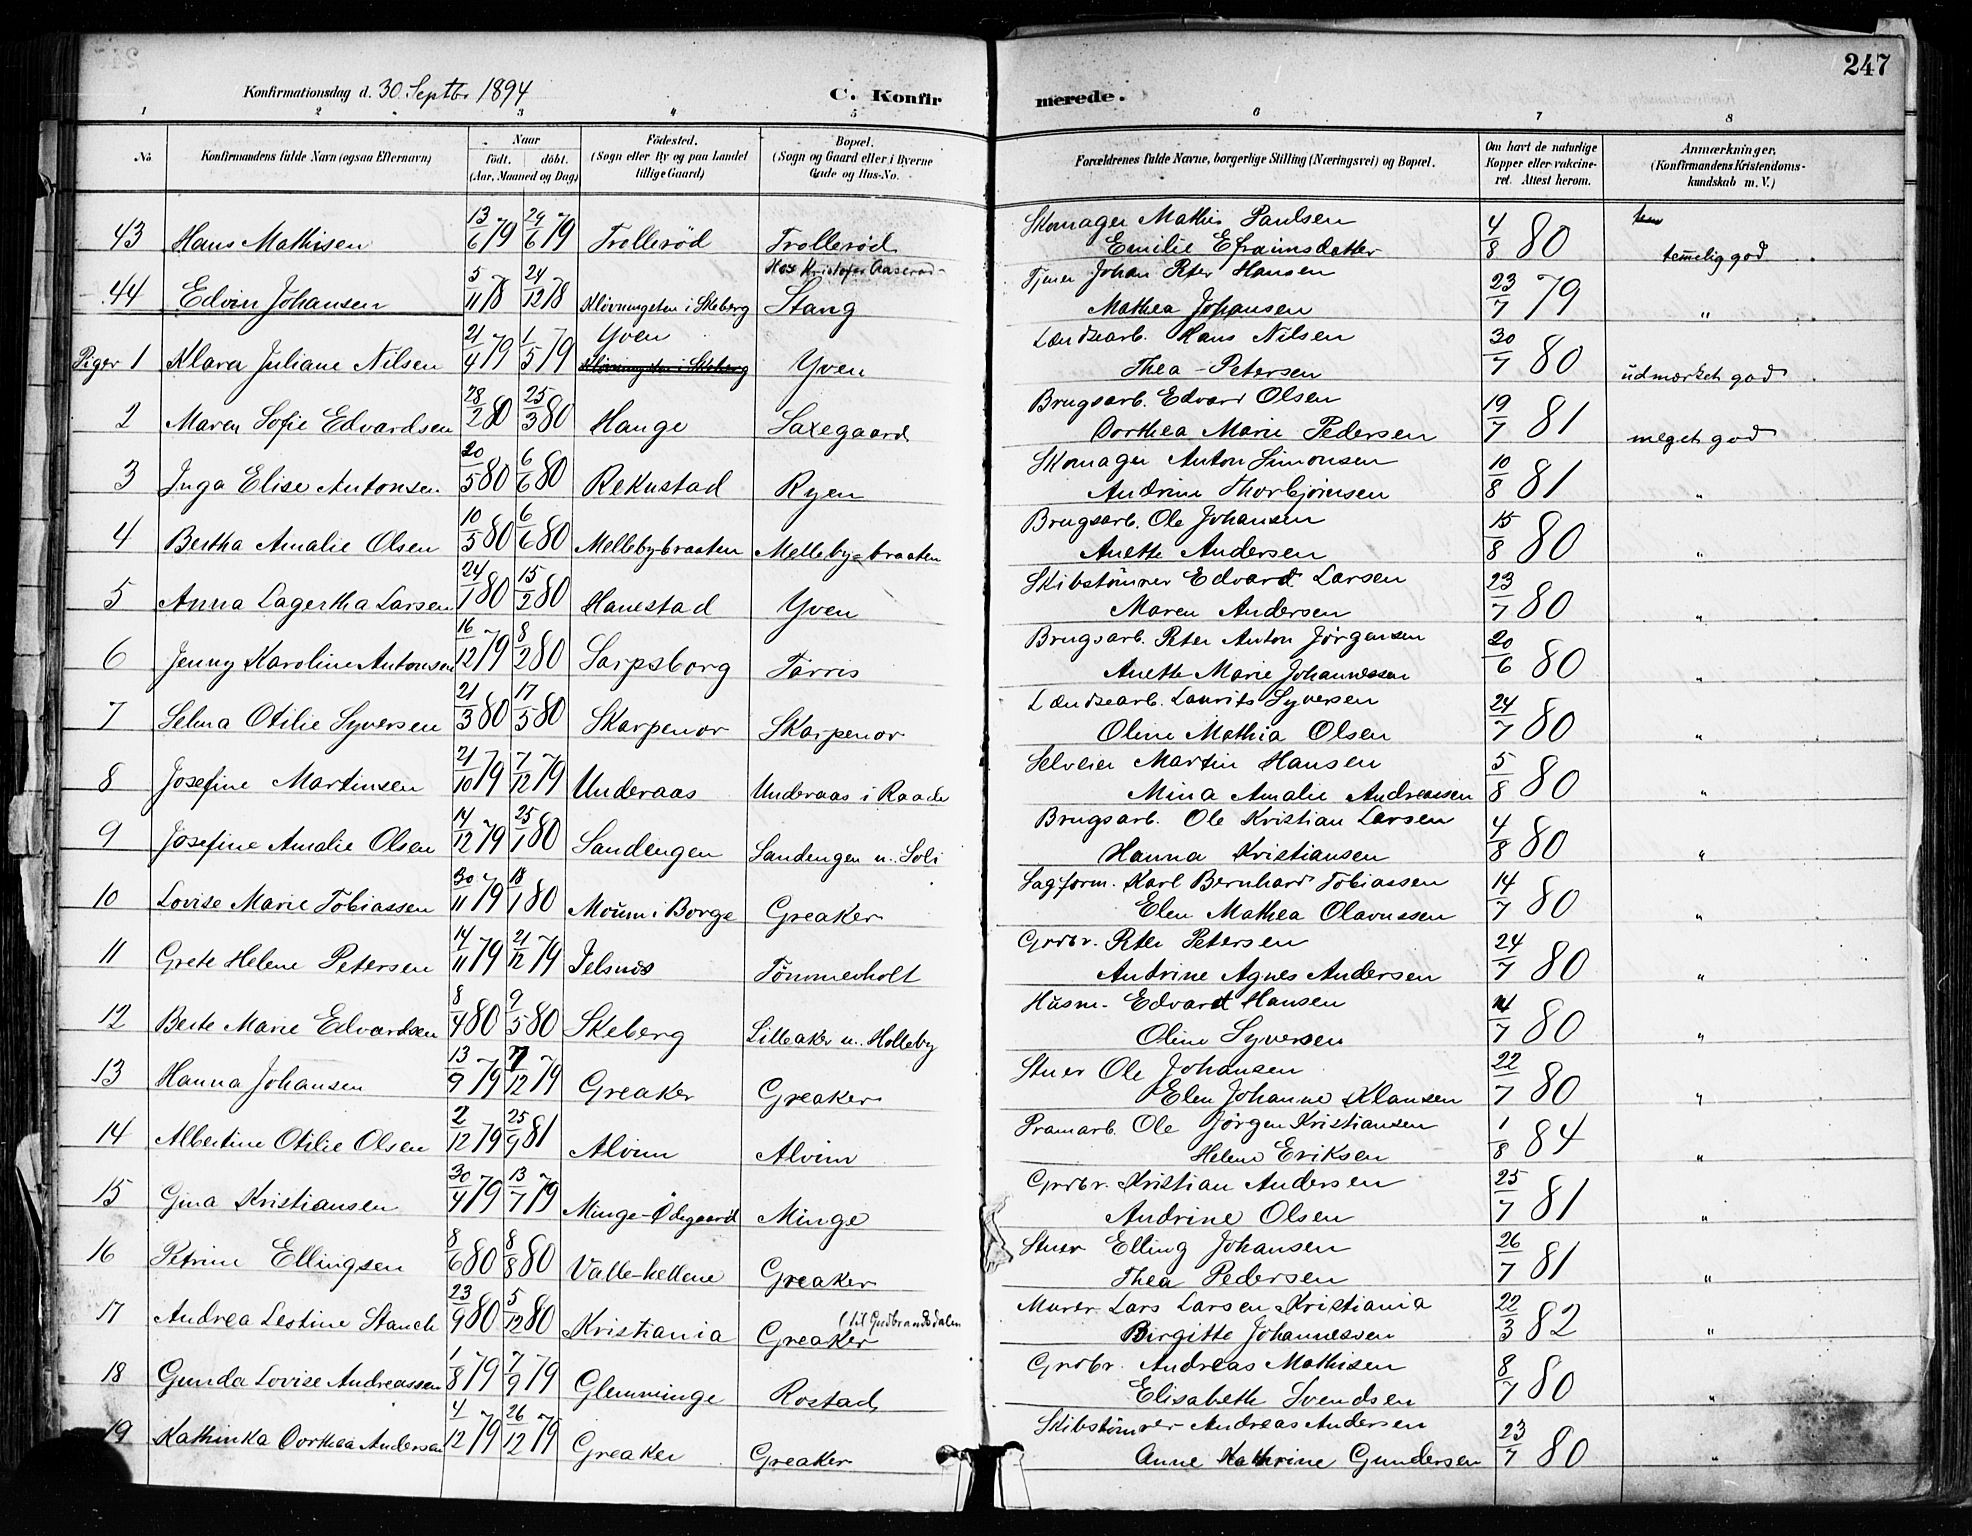 247
Konfirmationsdag d. 30 Septbr 1894
C. Konfir merede.
1 2 3 4 5 6 7 8
No
Konfirmandens fulde Navn (ogsaa Efternavn)
Naar
født. døbt.
(Aar, Maaned og Dag)
Fødested.
(Sogn eller By og paa Landet
tillige Gaard)
Bopæl.
(Sogn og Gaard eller i Byerne
Gade og Hus-No.
Forældrenes fulde Navne, borgerlige Stilling (Næringsvei) og Bopæl.
Om havt de naturlige
Kopper eller vakcine-
ret. Attest herom.
Anmærkninger,
(Konfirmandens Kristendoms-
kundskab m. V.)
43 Hans Mathisen 13/6 79 29/6 79 Trollerød Trollerød Skomager Mathis Paulsen 4/8 80
Emilie Efraimsdatter temmelig god
Hos Kristofer Aaserød
44 Edvin Johansen 5/11 78 24/12 78 Kløvningsten i Skeberg Stang Tjener Johan Peter Hansen 23/7 79 "
Mathea Johansen
Piger 1 Klara Juliane Nilsen 21/4 79 1/5 79 Yven Kløvningsten i Skeberg Yven Lændsearb. Hans Nilsen 30/7 80
Thea Petersen udmærket god
2 Maren Sofie Edvardsen 28/2 80 25/3 80 Hauge Saxegaard Brugsarb. Edvard Olsen 19/7 81
Dorthea Marie Pedersen meget god
3 Inga Elise Antonsen 20/5 80 6/6 80 Rekustad Ryen Skomager Anton Simonsen 10/8 81 "
Andrine Thorbjørnsen
4 Bertha Amalie Olsen 10/5 80 6/6 80 Mellebybraaten Melleby-braaten Brugsarb. Ole Johansen 15/8 80 "
Anette Andersen
5 Anna Lagertha Larsen 24/1 80 15/2 80 Hanestad Yven Skibstømrer Edvard Larsen 23/7 80 "
Maren Andersen
6 Jenny Karoline Antonsen 16/12 79 8/2 80 Sarpsborg Tørris Brugsarb. Peter Anton Jørgensen 20/6 80 "
Anette Marie Johannessen
7 Selma Otilie Syversen 21/3 80 17/5 80 Skarpenor Skarpenor Lændsearb. Laurits Syversen 24/7 80 "
Oline Mathia Olsen
8 Josefine Martinsen 21/10 79 7/12 79 Underaas Underaas i Raade Selveier Martin Hansen 5/8 80 "
Mina Amalie Andreassen
9 Josefine Amalie Olsen 14/12 79 25/1 80 Sandengen Sandengen u. Soli Brugsarb. Ole Kristian Larsen 4/8 80 "
Hanna Kristiansen
10 Lovise Marie Tobiassen 30/11 79 18/1 80 Moum i Borge Greaker Sagform. Karl Bernhard Tobiassen 14/7 80 "
Elen Mathea Olavussen
11 Grete Helene Petersen 14/11 79 21/12 79 Jelsnes Tømmerholt Grdbr. Peter Petersen 24/7 80 "
Andrine Agnes Andersen
12 Berte Marie Edvardsen 8/4 80 9/5 80 Skeberg Lilleaker u. Holleby Husm. Edvard Hansen /7 80 "
Oline Syversen
13 Hanna Johansen 13/9 79 7/12 79 Greaker Greaker Stuer Ole Johansen 22/7 80 "
Elen Johanne Klausen
14 Albertine Otilie Olsen 2/12 79 25/9 81 Alvim Alvim Pramarb. Ole Jørgen Kristiansen 1/8 84 "
Helene Eriksen
15 Gina Kristiansen 30/4 79 13/7 79 Minge-Ødegaard Minge Grdbr. Kristian Andersen 25/7 81 "
Andrine Olsen
16 Petrine Ellingsen 8/6 80 8/8 80 Valle-hellene Greaker Stuer Elling Johansen 26/7 81 "
Thea Pedersen
(til Gudbrandsdalen
17 Andrea Lestine Stanch 23/9 80 5/12 80 Kristiania Greaker Murer Lars Larsen Kristiania 22/3 82 "
Birgitte Johannessen
18 Gunda Lovise Andreassen 1/8 79 7/9 79 Glemminge Rostad Grdbr. Andreas Mathisen 8/7 80 "
Elisabeth Svendsen
19 Kathinka Dorthea Andersen 4/12 79 26/12 79 Greaker Greaker Skibstømrer Andreas Andersen 23/7 80 "
Anne Kathrine Gundersen